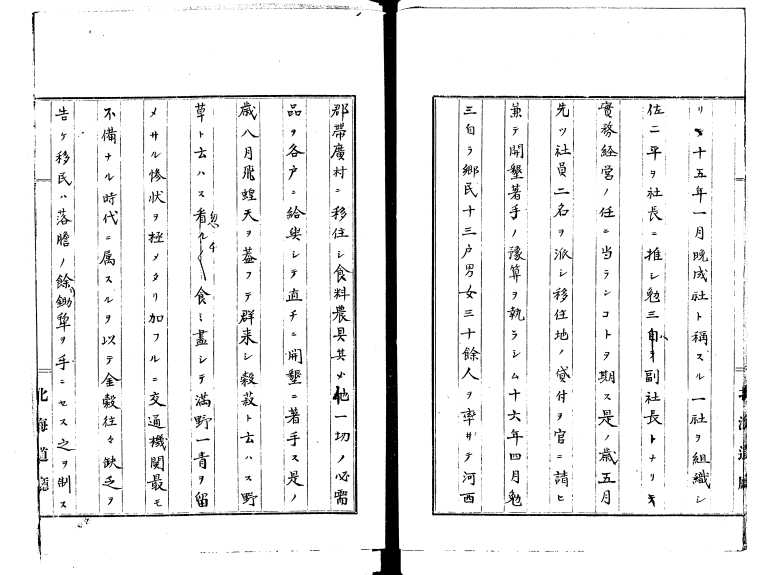 リ十五年一月晩成社ト稱スル一社ヲ組織シ
佐二平ヲ社長ニ推シ勉三ハ副社長トナリ
實務経営ノ任ニ当ランコトヲ期ス是ノ歳五月
先ツ社員二名ヲ派シ移住地ノ貸付ヲ官ニ請ヒ
兼テ開墾著手ノ豫算ヲ執ラシム十六年四月勉
三自ラ郷民十三戸男女三十餘人ヲ率ヰテ河西
郡帯廣村ニ移住シ食料農具其他一切ノ必需
品ヲ各戸ニ給与シテ直チニ開墾ニ著手ス是ノ
歳八月飛蝗天ヲ蓋フテ群来シ穀菽ト云ハス野
草ト云ハス忽チ食ミ盡シテ満野一青ヲ留
メサル惨状ヲ極メタリ加フルニ交通機関最モ
不備ナル時代ニ属スルヲ以テ金穀往々缺乏ヲ
告ケ移民ハ落膽ノ餘リ鋤犂ヲ手ニセス之ヲ制ス
北海道廳